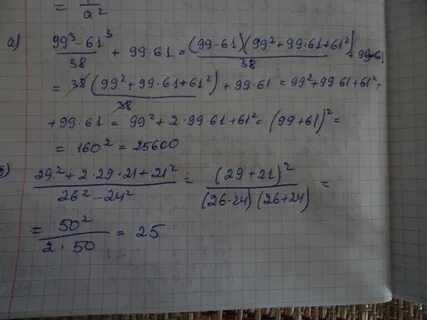 = 1/a²
а) (99³ - 61³)/38 + 99·61 = (99-61)(99²+99·61+61²)/38 + 99·61
= 38(99²+99·61+61²)/38 + 99·61 = 99²+99·61+61²+
+ 99·61 = 99² + 2·99·61+61² = (99+61)² =
= 160² = 25600
(29²+2·29·21+21²)/(26²-24²) = (29+21)²/((26-24)(26+24)) =
= 50²/(2·50) = 25